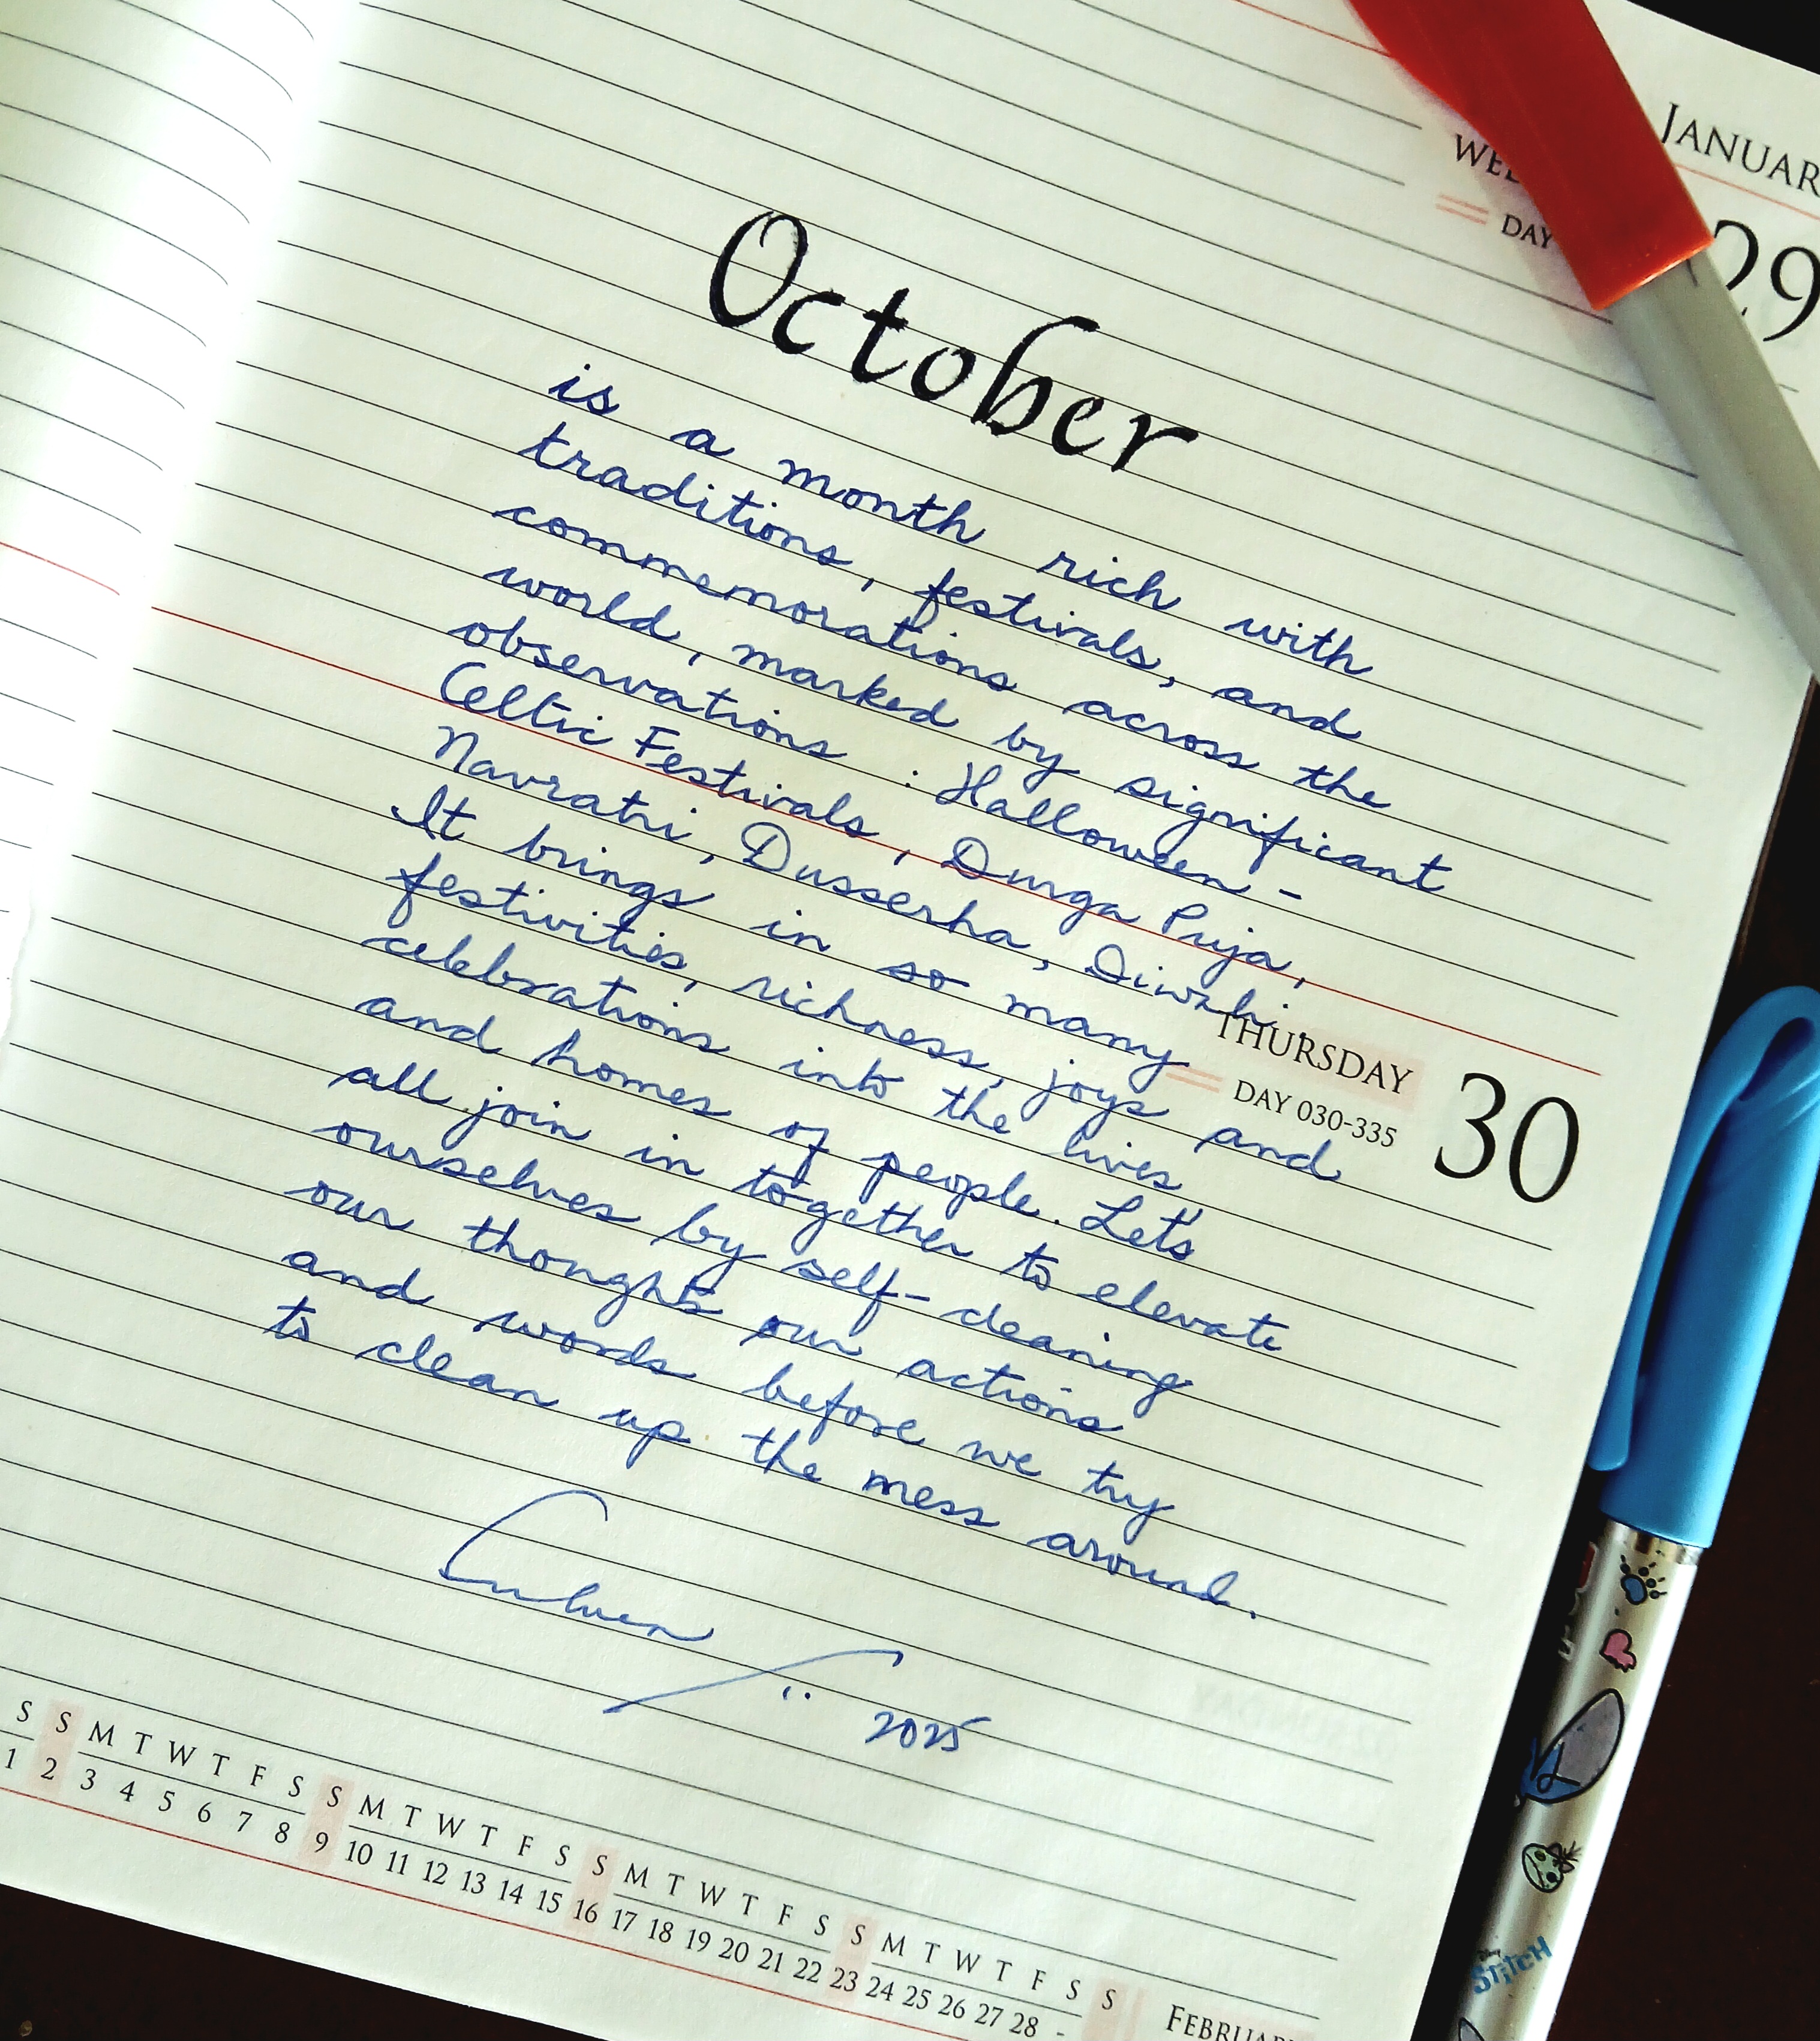 JANUAR
29
DAY
October
is a month rich with
traditions, festivals, and
commemorations across the
world, marked by significant
observations : Halloween -
Celtic Festivals, Durga Puja,
Navratri, Dusserha, Diwali.
It brings in so many
festivities, richness, joys and
celebrations into the lives
and homes of people. Let's
all join in together to elevate
ourselves by self-cleaning
our thoughts our actions
and words before we try
to clean up the mess around.
THURSDAY
DAY 030-335
30
2025
S S M T W T F S S M T W T F S S M T W T F S S M T W T F S S
1 2 3 4 5 6 7 8 9 10 11 12 13 14 15 16 17 18 19 20 21 22 23 24 25 26 27 28 -
FEBRUAR
Disney
STITCH